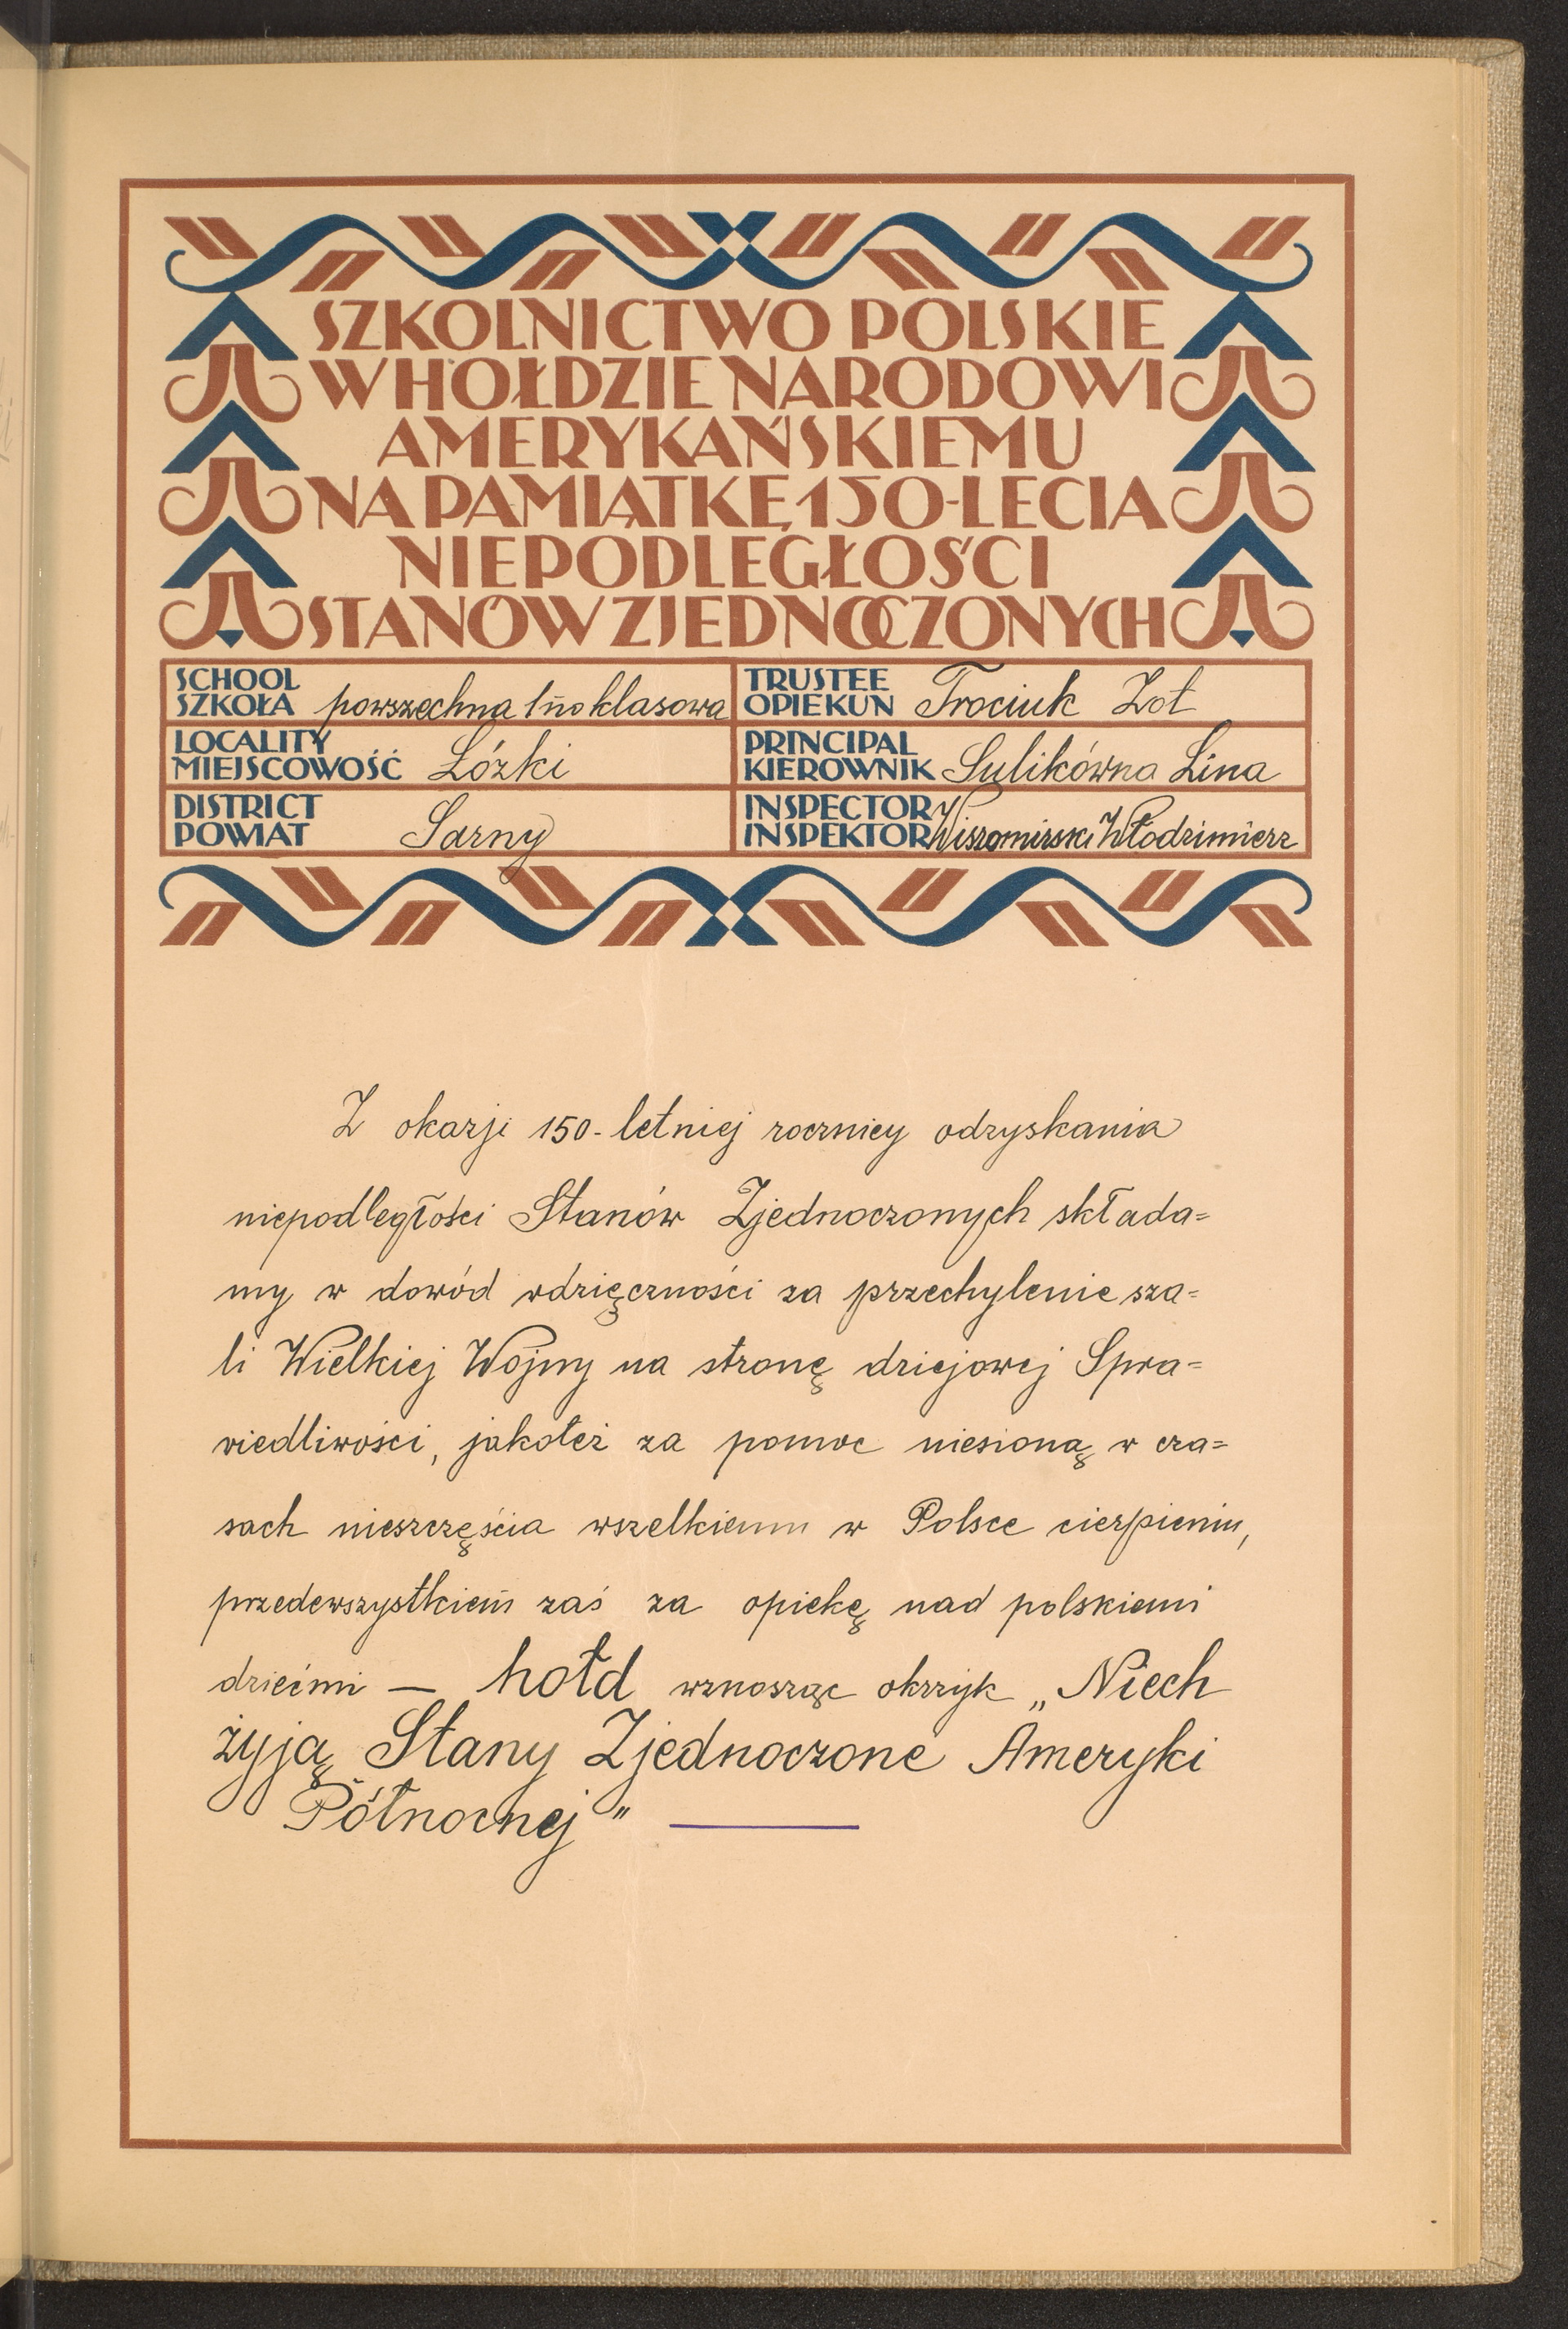 SZKOLNICTWO POLSKIE
W HOŁDZIE NARODOWI
AMERYKAŃSKIEMU
NA PAMIĄTKĘ 150-LECIA
NIEPODLEGŁOŚCI
STANÓW ZJEDNOCZONYCH
SCHOOL
SZKOŁA powszechna 1no klasowa
TRUSTEE
OPIEKUN Trociuk Zot
LOCALITY
MIEJSCOWOŚĆ Łózki
PRINCIPAL
KIEROWNIK Sulikówna Lina
DISTRICT
POWIAT Sarny
INSPECTOR
INSPEKTOR Wiszomirski Włodzimierz
Z okazji 150-letniej rocznicy odzyskania
niepodległości Stanów Zjednoczonych składa=
my w dowód wdzięczności za przechylenie sza=
li Wielkiej Wojny na stronę dziejowej Spra=
wiedliwości, jakoteż za pomoc niesioną w cza=
sach nieszczęścia wszelkiemu w Polsce cierpieniu,
przedewszystkiem zaś za opiekę nad polskiemi
dziećmi — hołd wznosząc okrzyk „Niech
żyją Stany Zjednoczone Ameryki
Północnej"